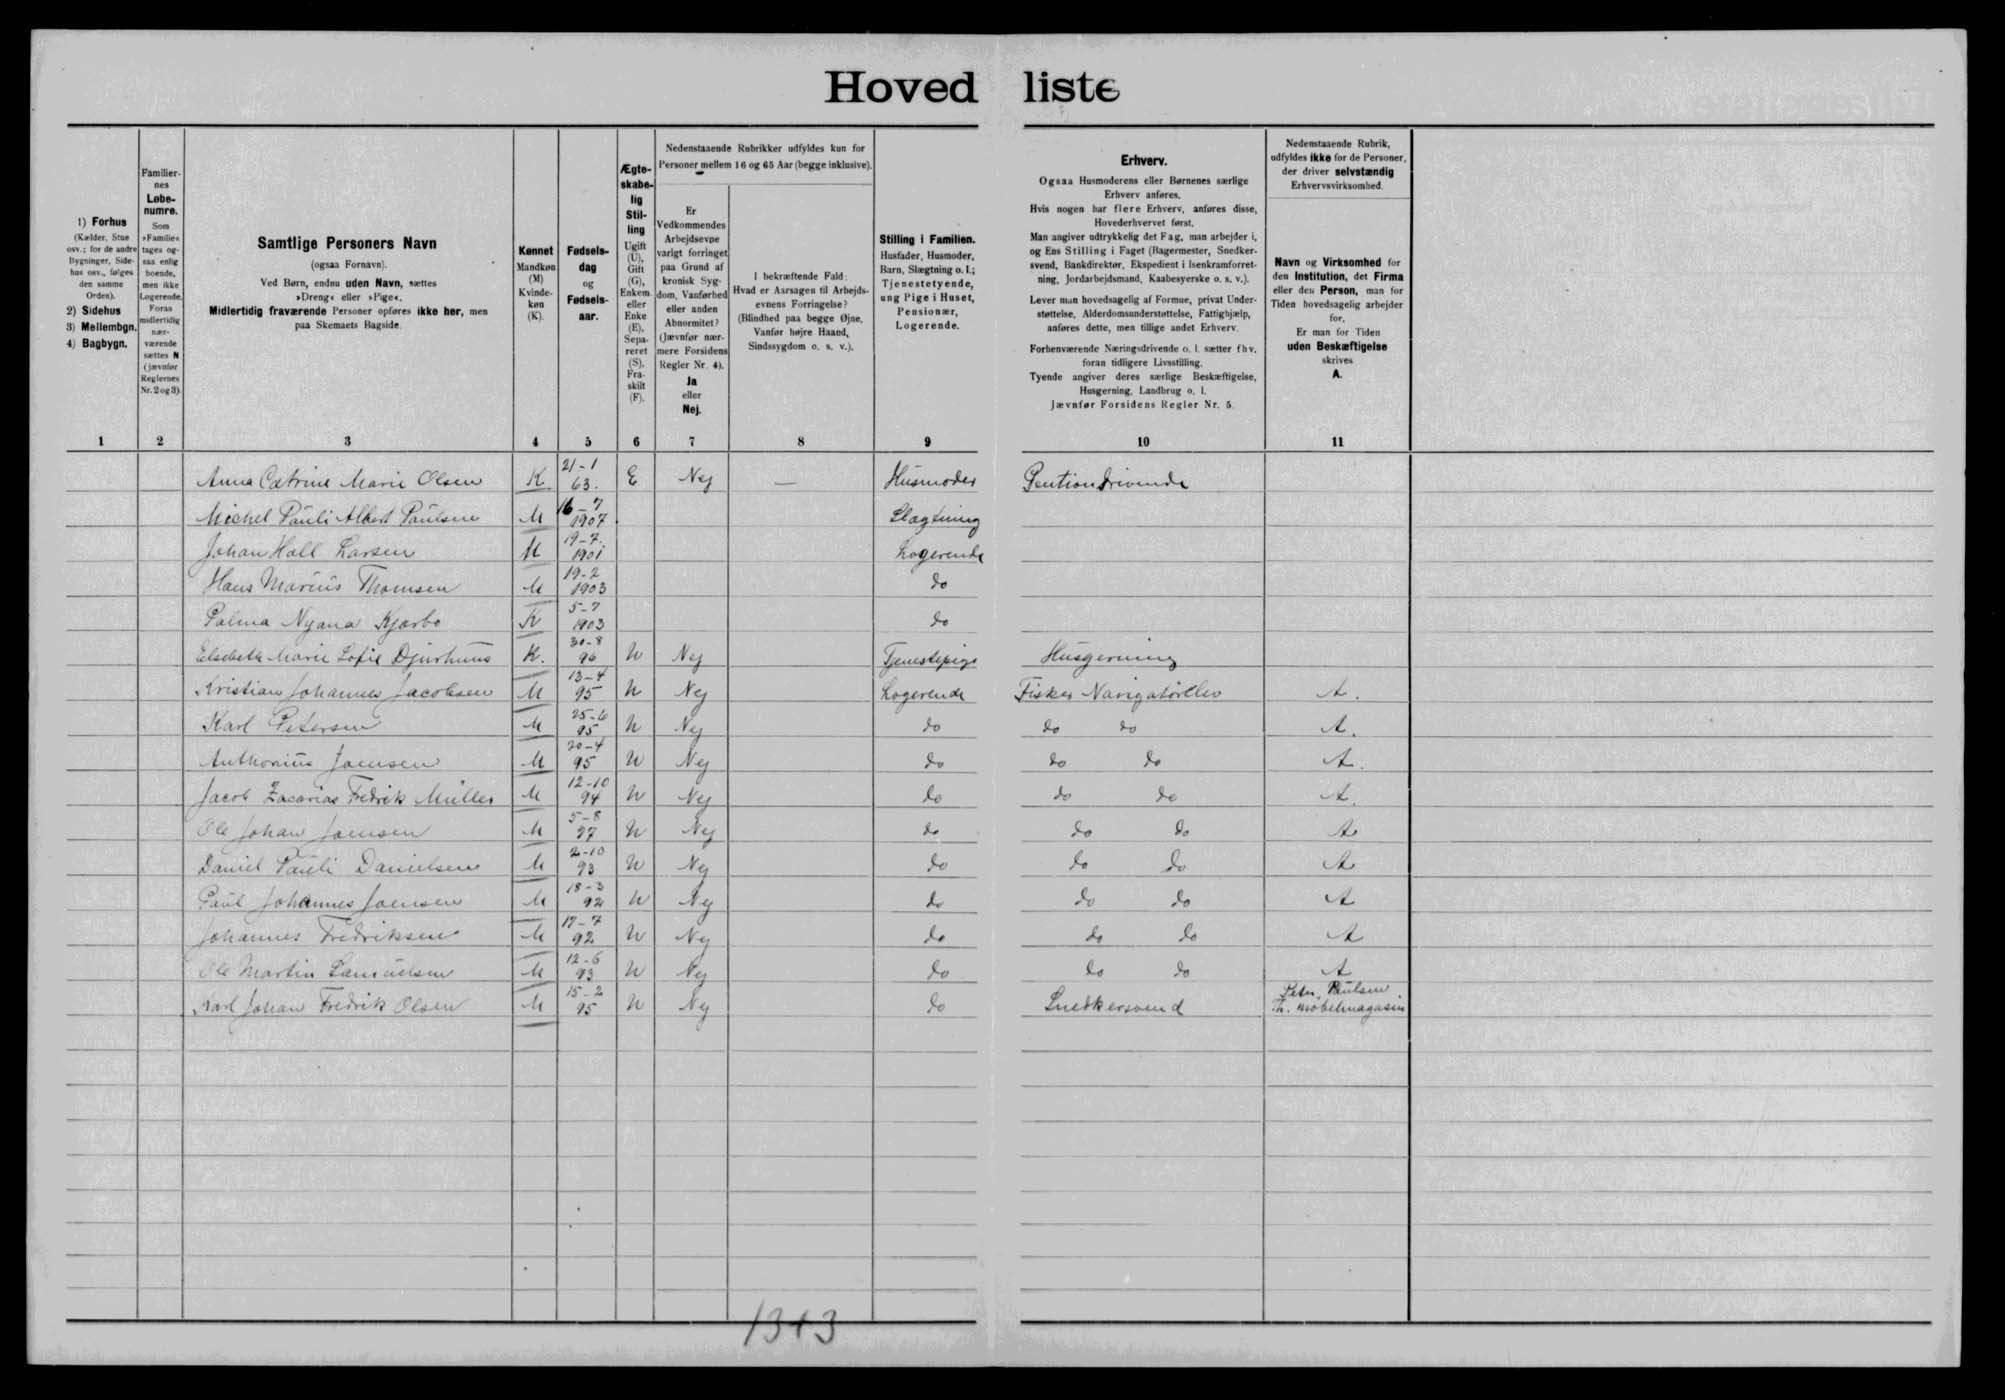 Hovedliste
1) Forhus
(Kælder, Stue
osv.; for de andre
Bygninger, Side-
hus osv., følges
den samme
Orden).
2) Sidehus
3) Mellembgn.
4) Bagbygn.
Familier-
nes
Løbe-
numre.
Som
»Familie«
tages og-
saa enlig
boende,
men ikke
Logerende.
Foran
midlertidig
nær-
værende
sættes N
(jævnfør
Reglernes
Nr. 2 og 3).
Samtlige Personers Navn
(ogsaa Fornavn).
Ved Børn, endnu uden Navn, sættes
»Dreng« eller »Pige«.
Midlertidig fraværende Personer opføres ikke her, men
paa Skemaets Bagside.
Kønnet
Mandkøn
(M)
Kvinde-
køn
(K).
Fødsels-
dag
og
Fødsels-
aar.
Ægte-
skabe-
lig
Stil-
ling
Ugift
(U),
Gift
(G),
Enkem.
eller
Enke
(E),
Sepa-
reret
(S),
Fra-
skilt
(F).
Nedenstaaende Rubrikker udfyldes kun for
Personer mellem 16 og 65 Aar (begge inklusive).
Er
Vedkommendes
Arbejdsevne
varigt forringet
paa Grund af
kronisk Syg-
dom, Vanførhed
eller anden
Abnormitet?
(Jævnfør nær-
mere Forsidens
Regler Nr. 4).
Ja
eller
Nej.
I bekræftende Fald:
Hvad er Aarsagen til Arbejds-
evnens Forringelse?
(Blindhed paa begge Øjne,
Vanfør højre Haand,
Sindssygdom o. s. v.).
Stilling i Familien.
Husfader, Husmoder,
Barn, Slægtning o. l.;
Tjenestetyende,
ung Pige i Huset,
Pensionær,
Logerende.
Erhverv.
Ogsaa Husmoderens eller Børnenes særlige
Erhverv anføres.
Hvis nogen har flere Erhverv, anføres disse,
Hovederhvervet først.
Man angiver udtrykkelig det Fag, man arbejder i,
og Ens Stilling i Faget (Bagermester, Snedker-
svend, Bankdirektør, Ekspedient i Isenkramforret-
ning, Jordarbejdsmand, Kaabesyerske o. s. v.).
Lever man hovedsagelig af Formue, privat Under-
støttelse, Alderdomsunderstøttelse, Fattighjælp,
anføres dette, men tillige andet Erhverv.
Forhenværende Næringsdrivende o. l. sætter fhv.
foran tidligere Livsstilling.
Tyende angiver deres særlige Beskæftigelse,
Husgerning, Landbrug o. l.
Jævnfør Forsidens Regler Nr. 5.
Nedenstaaende Rubrik,
udfyldes ikke for de Personer,
der driver selvstændig
Erhvervsvirksomhed.
Navn og Virksomhed for
den Institution, det Firma
eller den Person, man for
Tiden hovedsagelig arbejder
for.
Er man for Tiden
uden Beskæftigelse
skrives
A.
1 2 3 4 5 6 7 8 9 10 11
Anna Catrine Marie Olsen K 21-1 63. E Nej — Husmoder Pentiondrivende
Michel Pauli Albert Paulsen M 16-7 1907 Slægtning
Johan Hall Larsen M 19-7. 1901 Logerende
Hans Marius Thomsen M 19-2 1903 do
Palma Nyana Kjærbo K 5-7 1903 do
Elsebeth Marie Sofie Djurhuus K. 30-8 96 U Nej Tjenestepige Husgerning
Kristian Johannes Jacobsen M 13-4 95 U Nej Logerende Fisker Navigatørelev A.
Karl Petersen M 25-6 95 U Nej do do do A.
Anthonius Joensen M 20-4 95 U Nej do do do A.
Jacob Zacarias Fredrik Müller M 12-10 94 U Nej do do do A.
Ole Johan Joensen M 5-8 97 U Nej do do do A
Daniel Pauli Danielsen M 2-10 93 U Nej do do do A
Paul Johannes Joensen M 18-3 92 U Nej do do do A
Johannes Fredriksen M 17-7 92 U Nej do do do A
Ole Martin Samuelsen M 12-6 93 U Nej do do do A
Karl Johan Fredrik Olsen M 15-2 95 U Nej do Snedkersvend Peter Paulsen
Th. møbelmagasin
1343